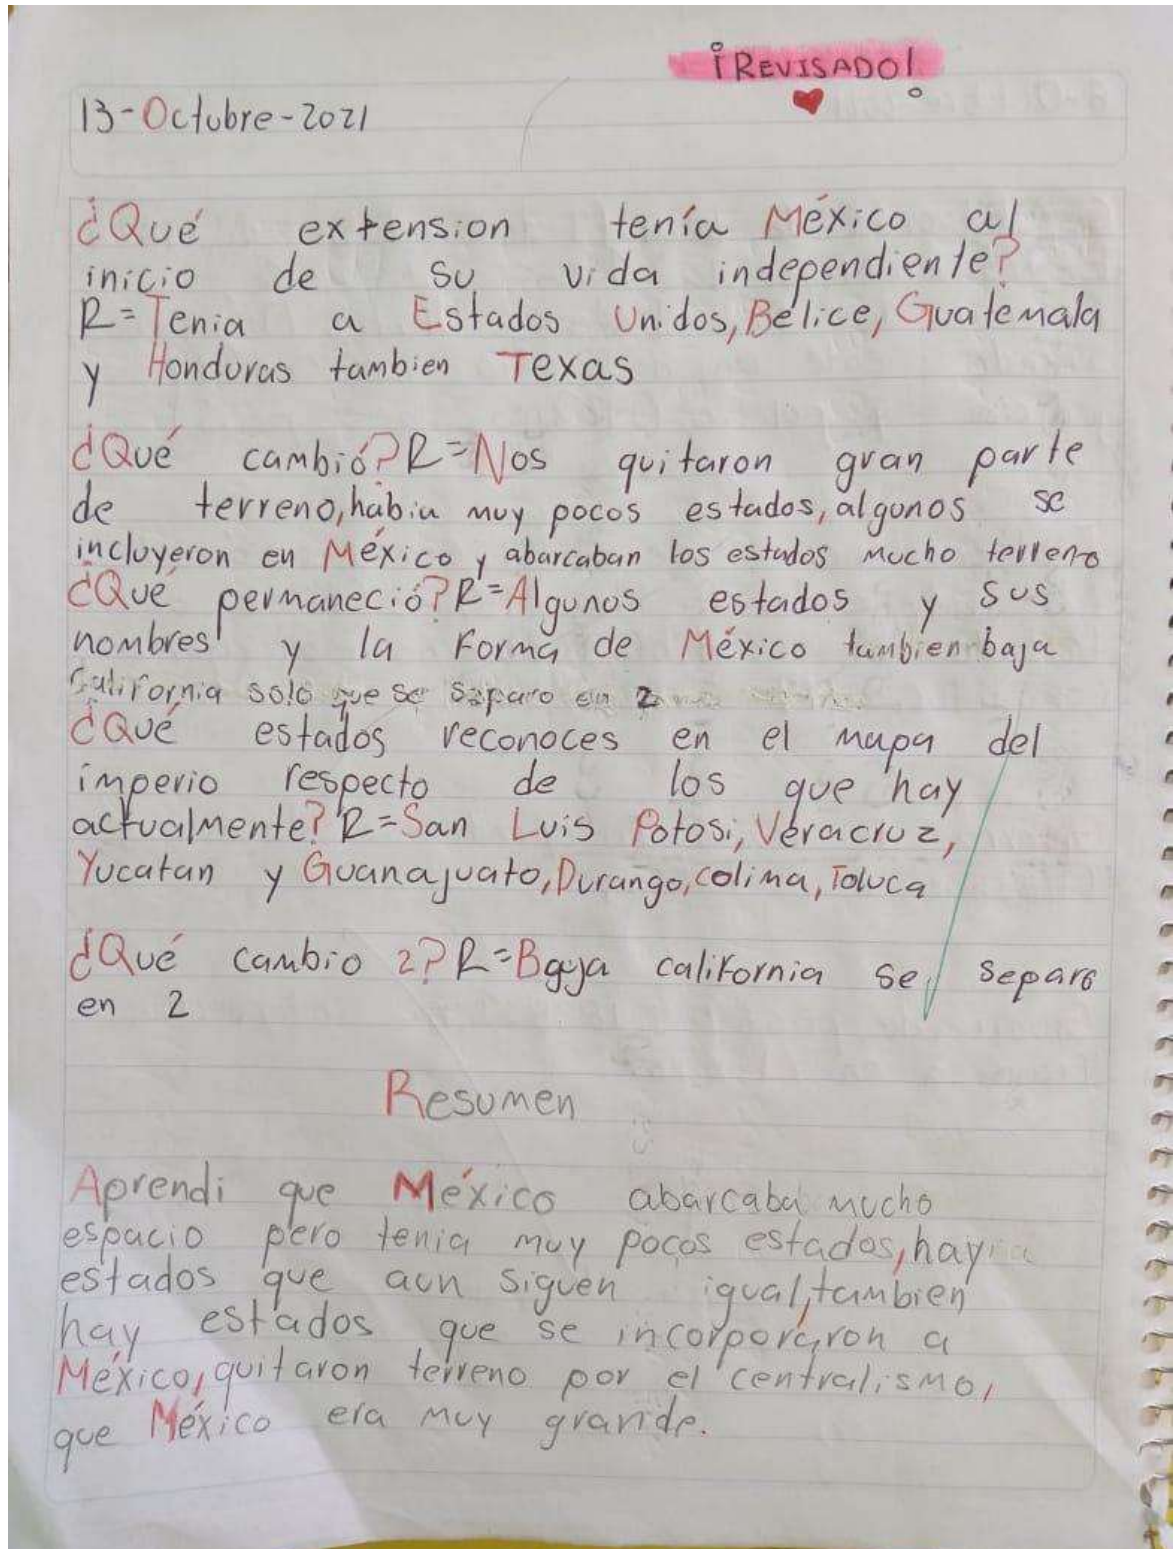 ¡REVISADO!
13-Octubre-2021
¿Qué extension tenía México al
inicio de su vida independiente?
R=Tenia a Estados Unidos, Belice, Guatemala
y Honduras tambien Texas
¿Qué cambió? R=Nos quitaron gran parte
de terreno, habia muy pocos estados, algunos se
incluyeron en México y abarcaban los estados mucho terreno
¿Qué permaneció? R=Algunos estados y sus
nombres y la Forma de México tambien baja
California solo que se separo en 2
¿Qué estados reconoces en el mapa del
imperio respecto de los que hay
actualmente? R=San Luis Potosi, Veracruz,
Yucatan y Guanajuato, Durango, colima, Toluca
¿Qué cambio 2? R=Baja california se separo
en 2
Resumen
Aprendi que México abarcaba mucho
espacio pero tenia muy pocos estados, hay
estados que aun siguen igual, tambien
hay estados que se incorporaron a
México, quitaron terreno por el centralismo,
que México era muy grande.